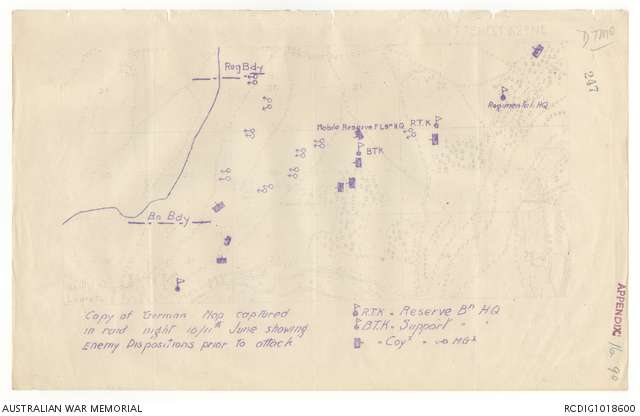 247
Reg Bdy
Regimental HQ
Mobile Reserve Fl Bn HQ
R.T.K
BTK
Bn Bdy
Copy of German Map captured
in raid night 10/11th June showing
Enemy Dispositions prior to attack
R.T.K - Reserve Bn HQ
B.T.K - Support " "
APPENDIX No. 90
AUSTRALIAN WAR MEMORIAL
RCDIG1018600